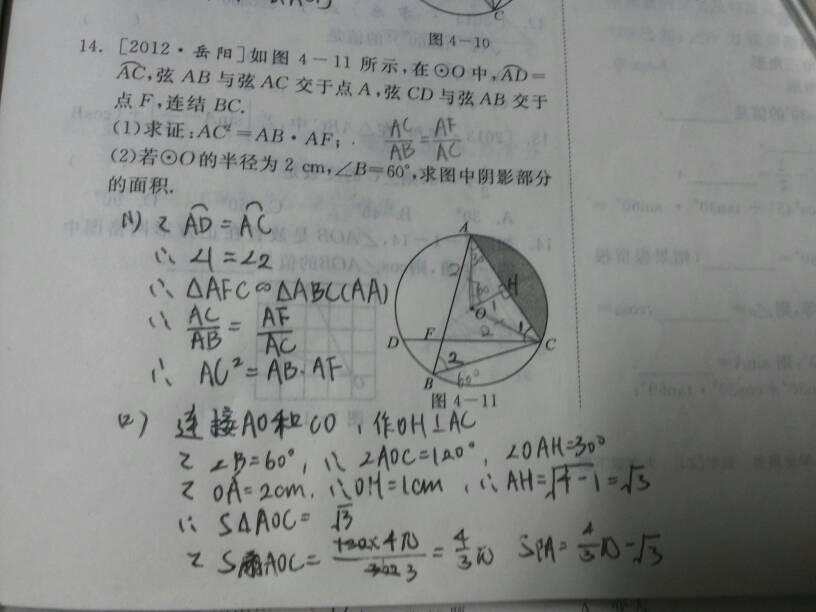 图4-10
14. [2012·岳阳]如图4-11所示,在⊙O中,A͡D=
A͡C,弦AB与弦AC交于点A,弦CD与弦AB交于
点F,连结BC.
(1)求证:AC²=AB·AF; AC/AB=AF/AC
(2)若⊙O的半径为2 cm,∠B=60°,求图中阴影部分
的面积.
(1) ∵ A͡D=A͡C
∴ ∠1=∠2
∴ △AFC∽△ABC(AA)
∴ AC/AB=AF/AC
∴ AC²=AB·AF
A
30
2
60
H
1
O
2
1
D
F
C
2
B
60°
图4-11
(2) 连接AO和CO,作OH⊥AC
∵ ∠B=60°,∴ ∠AOC=120°,∠OAH=30°
∵ OA=2cm,∴OH=1cm,∴AH=√4-1=√3
∴ S△AOC=√3
∵ S扇AOC=120×4π/360 3=4/3π S阴=4/3π-√3